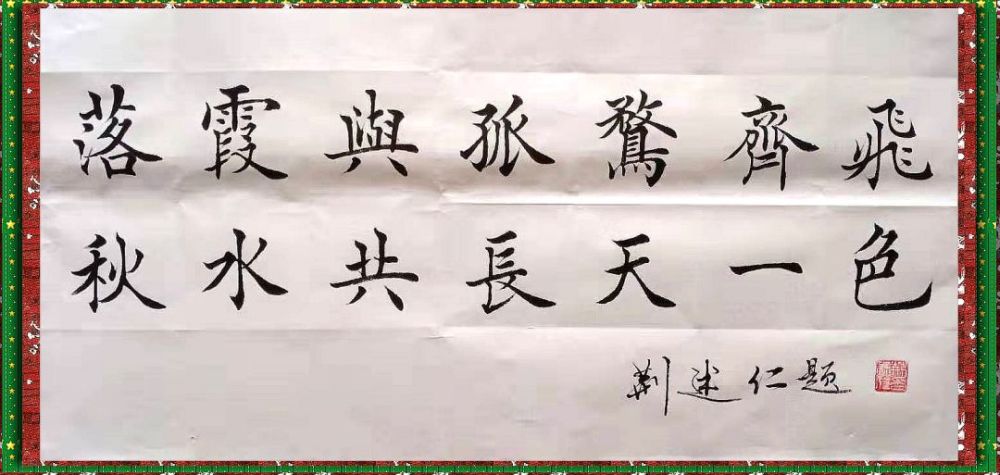 落霞與孤鶩齊飛
秋水共長天一色
荆述仁题